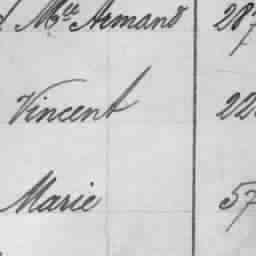 Mce Armand 287
Vincent 22
Marie 57